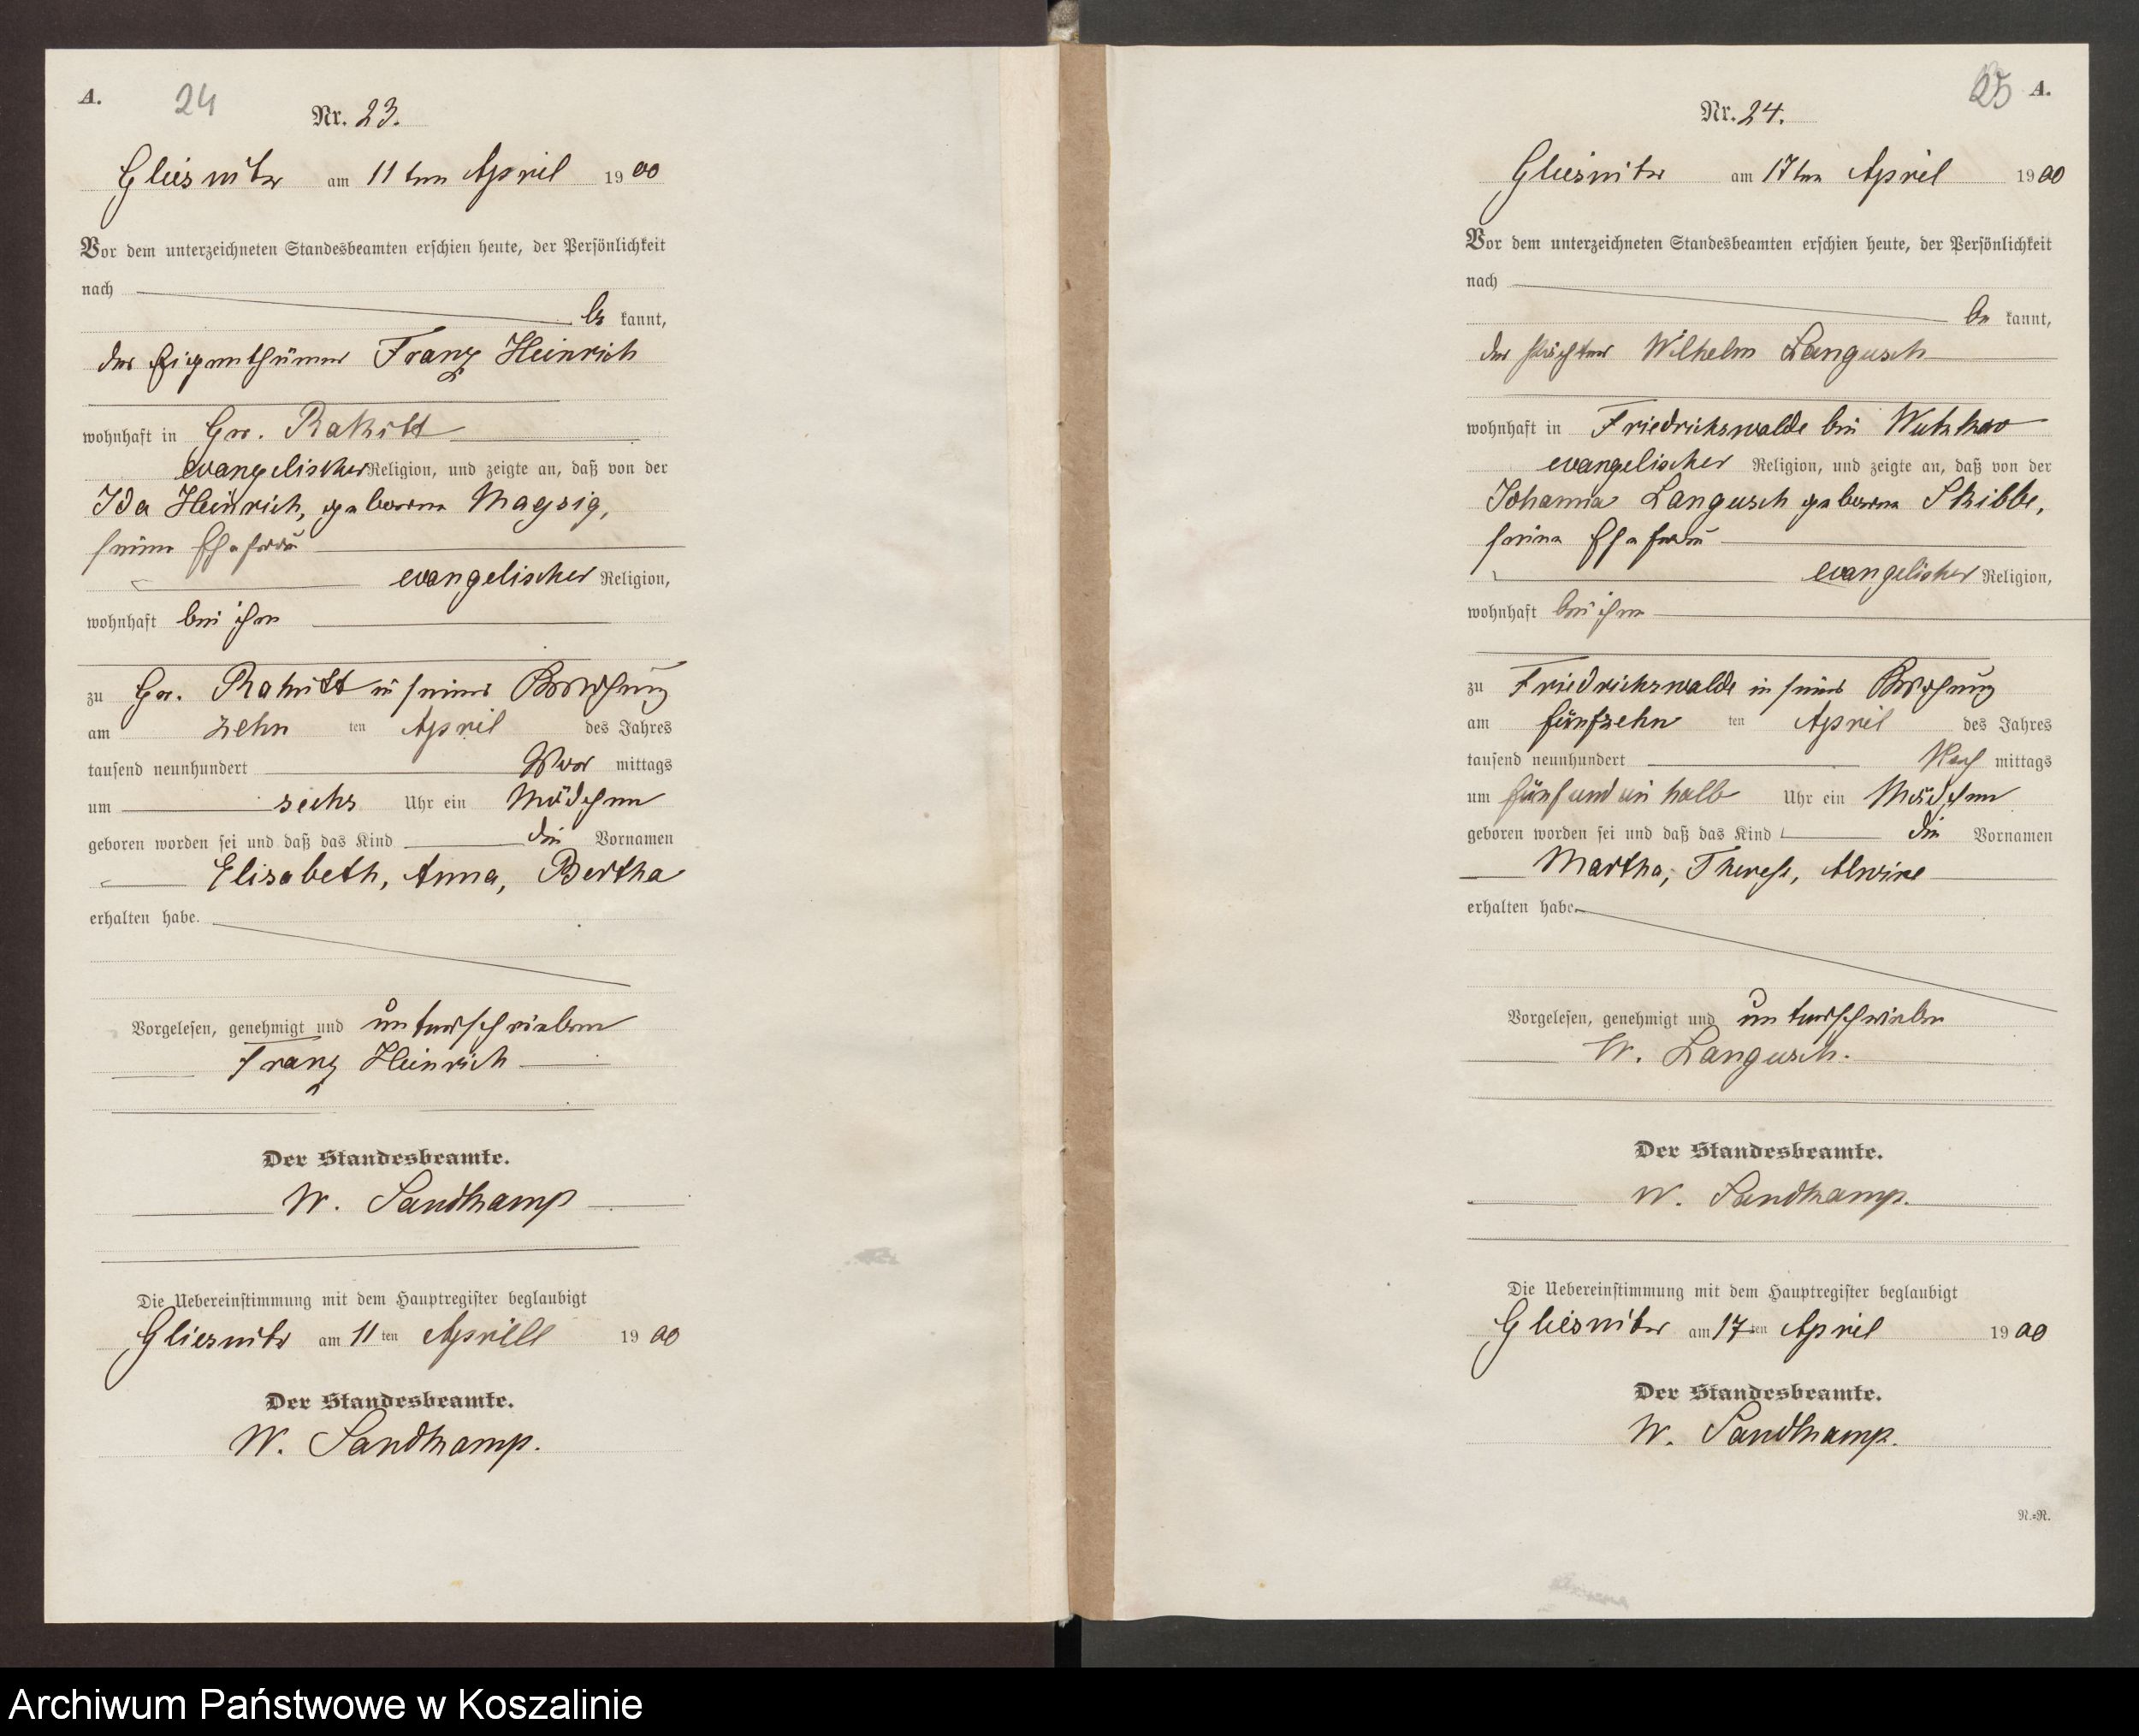 A.
24
Nr. 23.
Gliesnitz am 11ten April 1900
Vor dem unterzeichneten Standesbeamten erschien heute, der Persönlichkeit
nach
be kannt,
der Eigenthümer Franz Heinrich
wohnhaft in Gr. Rakitt
evangelischer Religion, und zeigte an, daß von der
Ida Heinrich, geborene Magsig,
seiner Ehefrau
evangelischer Religion,
wohnhaft bei ihm
zu Gr. Rakitt in seiner Wohnung
am zehn ten April des Jahres
tausend neunhundert Vor mittags
um sechs Uhr ein Mädchen
geboren worden sei und daß das Kind die Vornamen
Elisabeth, Anna, Bertha
erhalten habe.
Vorgelesen, genehmigt und unterschrieben
Franz Heinrich
Der Standesbeamte.
W. Sandkamp
Die Uebereinstimmung mit dem Hauptregister beglaubigt
Gliesnitz am 11 ten Aprill 1900
Der Standesbeamte.
W. Sandkamp.
25 A.
Nr. 24.
Gliesnitz am 17ten April 1900
Vor dem unterzeichneten Standesbeamten erschien heute, der Persönlichkeit
nach
be kannt,
der Pächter Wilhelm Langusch
wohnhaft in Friedrichswalde bei Wutzkow
evangelischer Religion, und zeigte an, daß von der
Johanna Langusch geborene Skibbe,
seine Ehefrau
evangelischer Religion,
wohnhaft bei ihm
zu Friedrichswalde in seiner Wohnung
am fünfzehn ten April des Jahres
tausend neunhundert Nach mittags
um fünf und ein halb Uhr ein Mädchen
geboren worden sei und daß das Kind die Vornamen
Martha, Therese, Alwine
erhalten habe.
Vorgelesen, genehmigt und unterschrieben
W. Langusch.
Der Standesbeamte.
W. Sandkamp.
Die Uebereinstimmung mit dem Hauptregister beglaubigt
Gliesnitz am 17 ten April 1900
Der Standesbeamte.
W. Sandkamp.
N.=N.
Archiwum Państwowe w Koszalinie